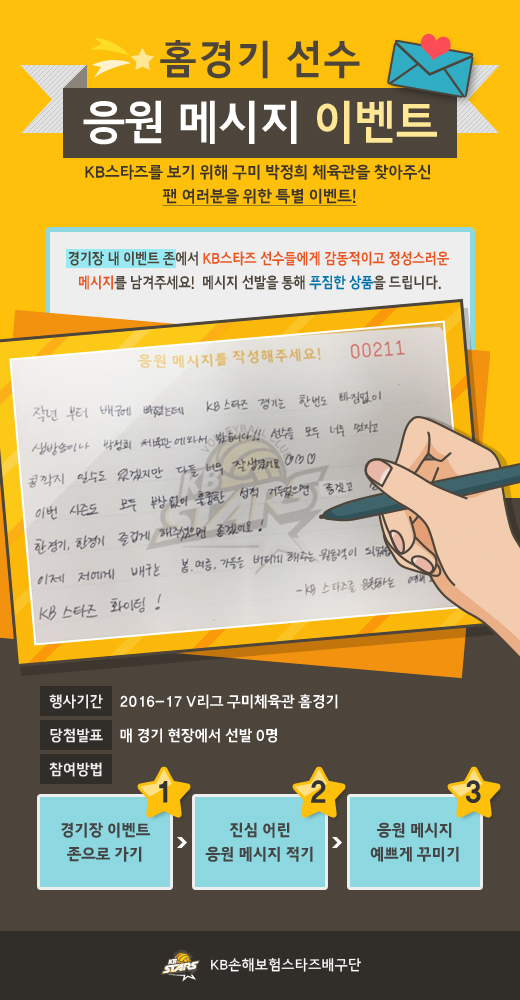 홈경기 선수
응원 메시지 이벤트
KB스타즈를 보기 위해 구미 박정희 체육관을 찾아주신
팬 여러분을 위한 특별 이벤트!
경기장 내 이벤트 존에서 KB스타즈 선수들에게 감동적이고 정성스러운
메시지를 남겨주세요! 메시지 선발을 통해 푸짐한 상품을 드립니다.
응원 메시지를 작성해주세요! 00211
작년 부터 배구에 빠졌는데 KB스타즈 경기는 한번도 빠짐없이
생방송이나 박정희 체육관에와서 봤습니다!! 선수들 모두 너무 멋지고
콩깍지 일수도 있겠지만 다들 너무 잘생겼어요
이번 시즌도 모두 부상없이 훌륭한 성적 거뒀으면 좋겠고
한경기, 한경기 즐겁게 해주셨으면 좋겠어요!
이제 저에게 배구는 봄, 여름, 가을을 버티게 해주는 원동력이
KB 스타즈 화이팅!
-KB 스타즈를 응원하는
KB STARS
행사기간 2016-17 V리그 구미체육관 홈경기
당첨발표 매 경기 현장에서 선발 0명
참여방법
1
경기장 이벤트
존으로 가기
2
진심 어린
응원 메시지 적기
3
응원 메시지
예쁘게 꾸미기
KB STARS KB손해보험스타즈배구단